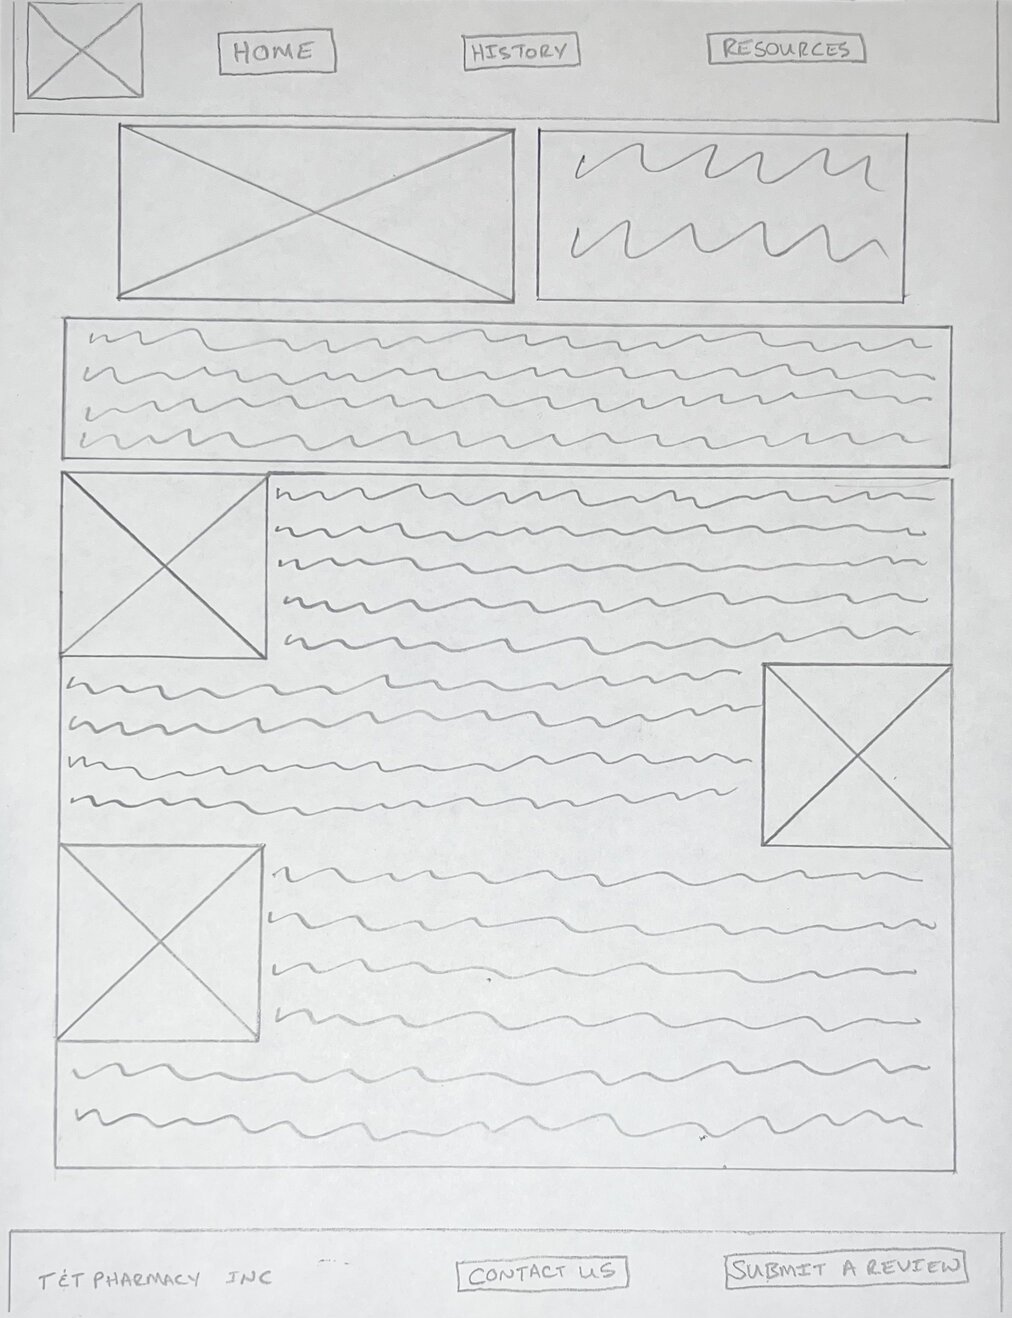 HOME HISTORY RESOURCES
T&T PHARMACY INC CONTACT US SUBMIT A REVIEW